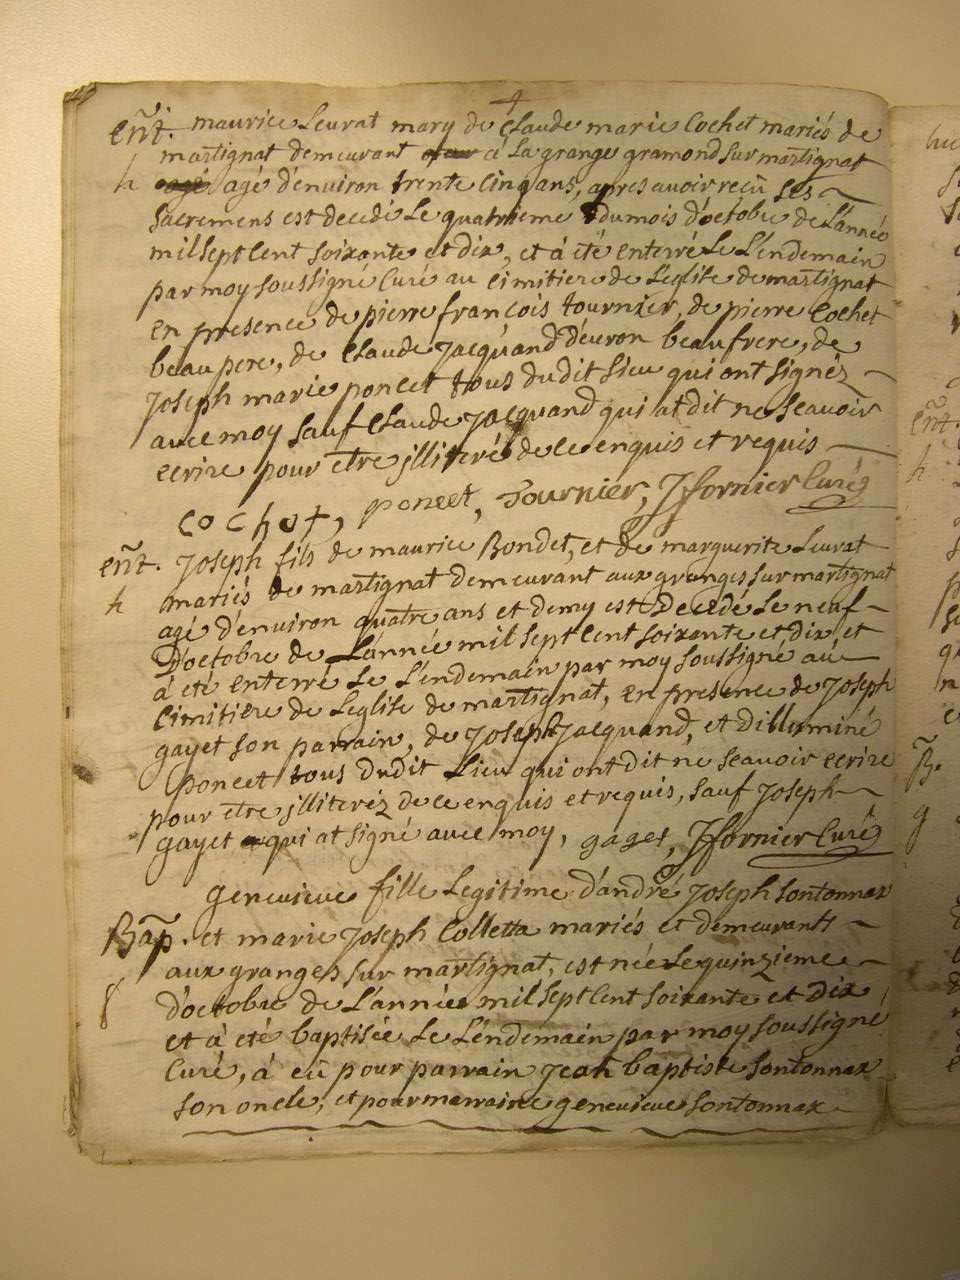 ent. maurice Leurat mary de Claude marie Cochet mariés de
martignat demeurant à La grange gramond sur martignat
h agé d'environ trente cinq ans, apres avoir reçû ses
sacremens est decedé Le quatrieme du mois d'octobre de L'année
mil sept cent soixante et dix, et à été enterré Le L'endemain
par moy soussigné Curé au cimitiere de L'eglise de martignat
en presence de pierre françois tournier, de pierre Cochet
beaupere, de Claude Jacquand d'evron beaufrere, de
Joseph marie poncet tous dudit Lieu qui ont signéz
avec moy sauf Claude Jacquand qui at dit ne sçavoir
ecrire pour etre jlliteré de ce enquis et requis
Cochet, poncet, Tournier, Jffornier Curé
ent. Joseph fils de maurice Bondet, et de marguerite Leurat
h mariés de martignat demeurant aux granges sur martignat
agé d'environ quatre ans et demy est decedé Le neuf
D'octobre de L'année mil sept cent soixante et dix et
à été enterré Le L'endemain par moy soussigné au
cimitiere de L'eglise de martignat, en presence de Joseph
gayet son parrain, de Joseph Jacquand, et d'illuminé
poncet tous dudit Lieu qui ont dit ne sçavoir ecrire
pour etre jlliteréz de ce enquis et requis, sauf Joseph
gayet qui at signé avec moy, gaget, Jffornier Curé
genevieve fille Legitime d'andré Joseph sontonnax
Bap. et marie Joseph Colletta mariés et demeurants
aux granges sur martignat, est née Le quinzieme
f d'octobre de L'année mil sept cent soixante et dix
et à été baptisée Le L'endemain par moy soussigné
Curé, à eû pour parrain Jean baptiste sontonnax
son oncle, et pour marraine genevieve sontonnax